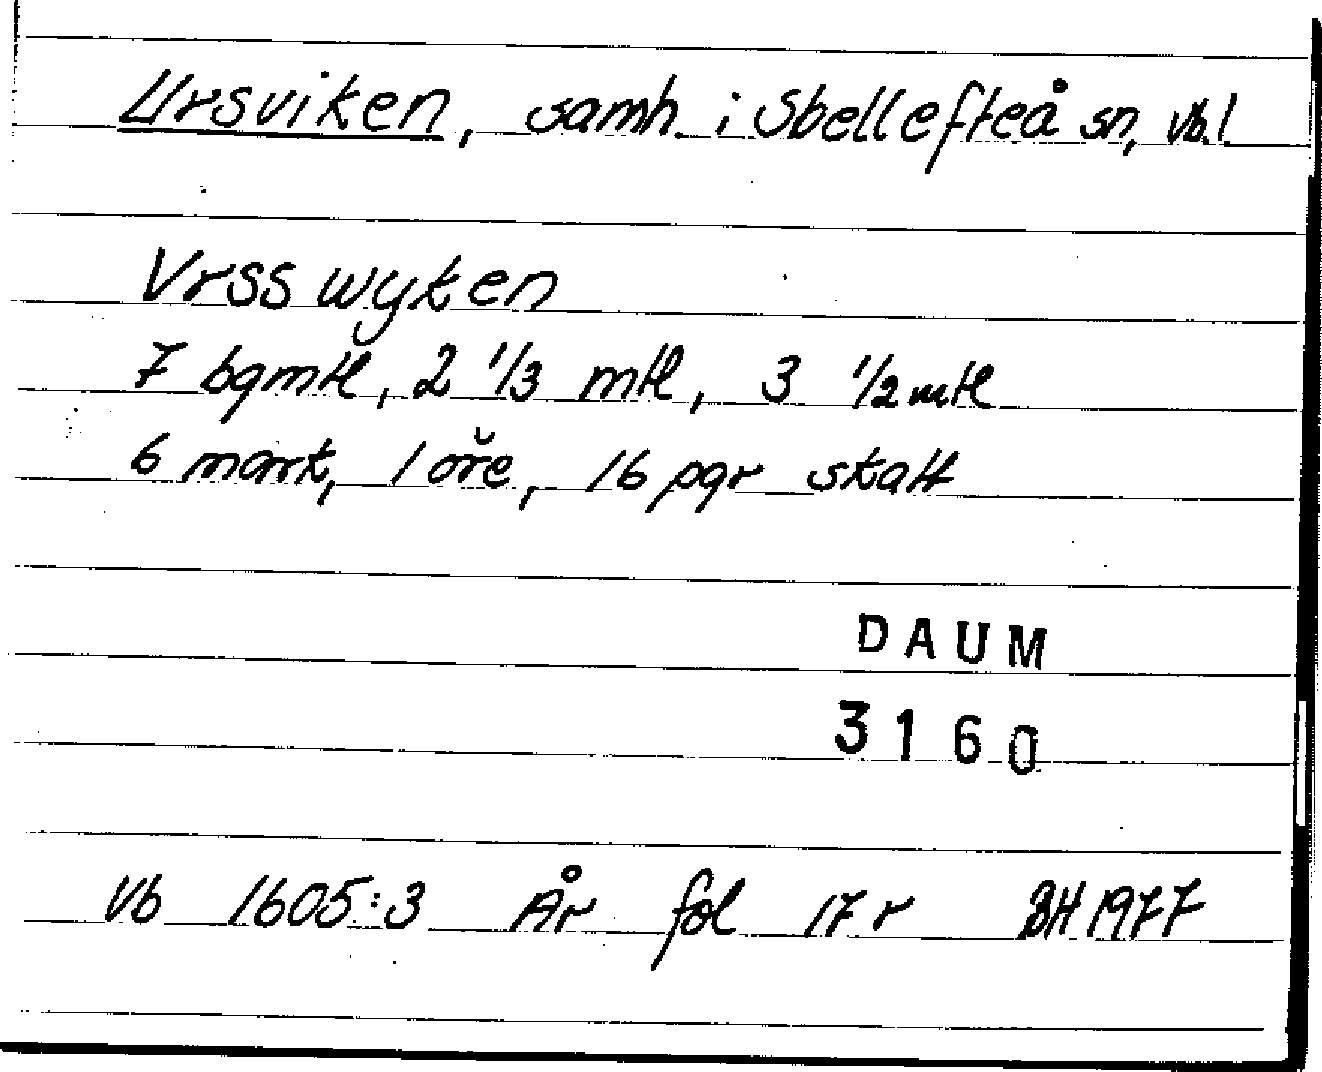 Ursviken, samh i Skellefteå sn, Vb.l
Vrss wyken
7 bgmtl, 2 1/3 mtl, 3 1/2 mtl
6 mark, 1 öre, 16 pgr skatt
DAUM
3160
Vb 1605:3 År fol 17 r BH 1977